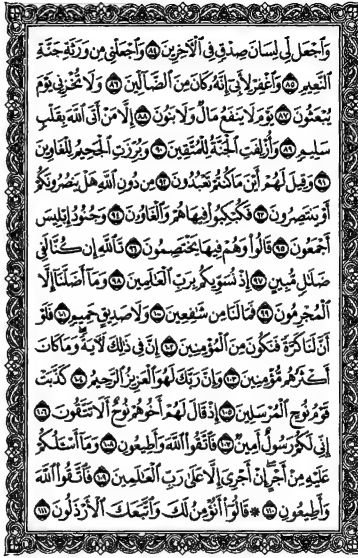 وَٱجۡعَل لِّي لِسَانَ صِدۡقٖ فِي ٱلۡأٓخِرِينَ ٨٤ وَٱجۡعَلۡنِي مِن وَرَثَةِ جَنَّةِ
ٱلنَّعِيمِ ٨٥ وَٱغۡفِرۡ لِأَبِيٓ إِنَّهُۥ كَانَ مِنَ ٱلضَّآلِّينَ ٨٦ وَلَا تُخۡزِنِي يَوۡمَ
يُبۡعَثُونَ ٨٧ يَوۡمَ لَا يَنفَعُ مَالٞ وَلَا بَنُونَ ٨٨ إِلَّا مَنۡ أَتَى ٱللَّهَ بِقَلۡبٖ
سَلِيمٖ ٨٩ وَأُزۡلِفَتِ ٱلۡجَنَّةُ لِلۡمُتَّقِينَ ٩٠ وَبُرِّزَتِ ٱلۡجَحِيمُ لِلۡغَاوِينَ
٩١ وَقِيلَ لَهُمۡ أَيۡنَ مَا كُنتُمۡ تَعۡبُدُونَ ٩٢ مِن دُونِ ٱللَّهِ هَلۡ يَنصُرُونَكُمۡ
أَوۡ يَنتَصِرُونَ ٩٣ فَكُبۡكِبُواْ فِيهَا هُمۡ وَٱلۡغَاوُۥنَ ٩٤ وَجُنُودُ إِبۡلِيسَ
أَجۡمَعُونَ ٩٥ قَالُواْ وَهُمۡ فِيهَا يَخۡتَصِمُونَ ٩٦ تَٱللَّهِ إِن كُنَّا لَفِي
ضَلَٰلٖ مُّبِينٍ ٩٧ إِذۡ نُسَوِّيكُم بِرَبِّ ٱلۡعَٰلَمِينَ ٩٨ وَمَآ أَضَلَّنَآ إِلَّا
ٱلۡمُجۡرِمُونَ ٩٩ فَمَا لَنَا مِن شَٰفِعِينَ ١٠٠ وَلَا صَدِيقٍ حَمِيمٖ ١٠١ فَلَوۡ
أَنَّ لَنَا كَرَّةٗ فَنَكُونَ مِنَ ٱلۡمُؤۡمِنِينَ ١٠٢ إِنَّ فِي ذَٰلِكَ لَأٓيَةٗۖ وَمَا كَانَ
أَكۡثَرُهُم مُّؤۡمِنِينَ ١٠٣ وَإِنَّ رَبَّكَ لَهُوَ ٱلۡعَزِيزُ ٱلرَّحِيمُ ١٠٤ كَذَّبَتۡ
قَوۡمُ نُوحٍ ٱلۡمُرۡسَلِينَ ١٠٥ إِذۡ قَالَ لَهُمۡ أَخُوهُمۡ نُوحٌ أَلَا تَتَّقُونَ ١٠٦
إِنِّي لَكُمۡ رَسُولٌ أَمِينٞ ١٠٧ فَٱتَّقُواْ ٱللَّهَ وَأَطِيعُونِ ١٠٨ وَمَآ أَسۡـَٔلُكُمۡ
عَلَيۡهِ مِنۡ أَجۡرٍۖ إِنۡ أَجۡرِيَ إِلَّا عَلَىٰ رَبِّ ٱلۡعَٰلَمِينَ ١٠٩ فَٱتَّقُواْ ٱللَّهَ
وَأَطِيعُونِ ١١٠ ۞ قَالُوٓاْ أَنُؤۡمِنُ لَكَ وَٱتَّبَعَكَ ٱلۡأَرۡذَلُونَ ١١١